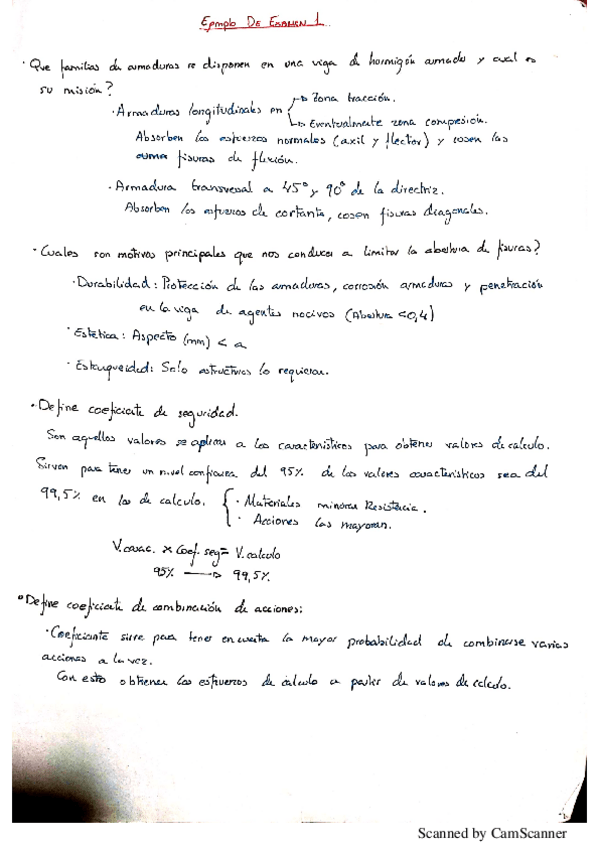 Ejemplo De Examen 1
· Que familias de armaduras se disponen en una viga de hormigón armado y cual es
su misión?
· Armaduras longitudinales en → Zona tracción.
→ Eventualmente zona compresión.
Absorben los esfuerzos normales (axil y flector) y cosen las
fisuras de flexión.
· Armadura transversal a 45° y 90° de la directriz.
Absorben los esfuerzos de cortante, cosen fisuras diagonales.
· Cuales son motivos principales que nos conducen a limitar la abertura de fisuras?
· Durabilidad: Protección de las armaduras, corrosión armaduras y penetración
en la viga de agentes nocivos (Abertura <0,4)
· Estética: Aspecto (mm) < a
· Estanqueidad: Solo estructuras lo requieran.
· Define coeficiente de seguridad.
Son aquellos valores se aplican a los característicos para obtener valores de calculo.
Sirven para tener un nivel confianza del 95% de los valores característicos sea del
99,5% en los de calculo. { · Materiales minoran Resistencia.
· Acciones las mayoran.
V.carac. × Coef. seg = V. calculo
95% → 99,5%
· Define coeficiente de combinación de acciones:
· Coeficiente sirve para tener en cuenta la mayor probabilidad de combinarse varias
acciones a la vez.
Con esto obtienen los esfuerzos de calculo a partir de valores de calculo.
Scanned by CamScanner